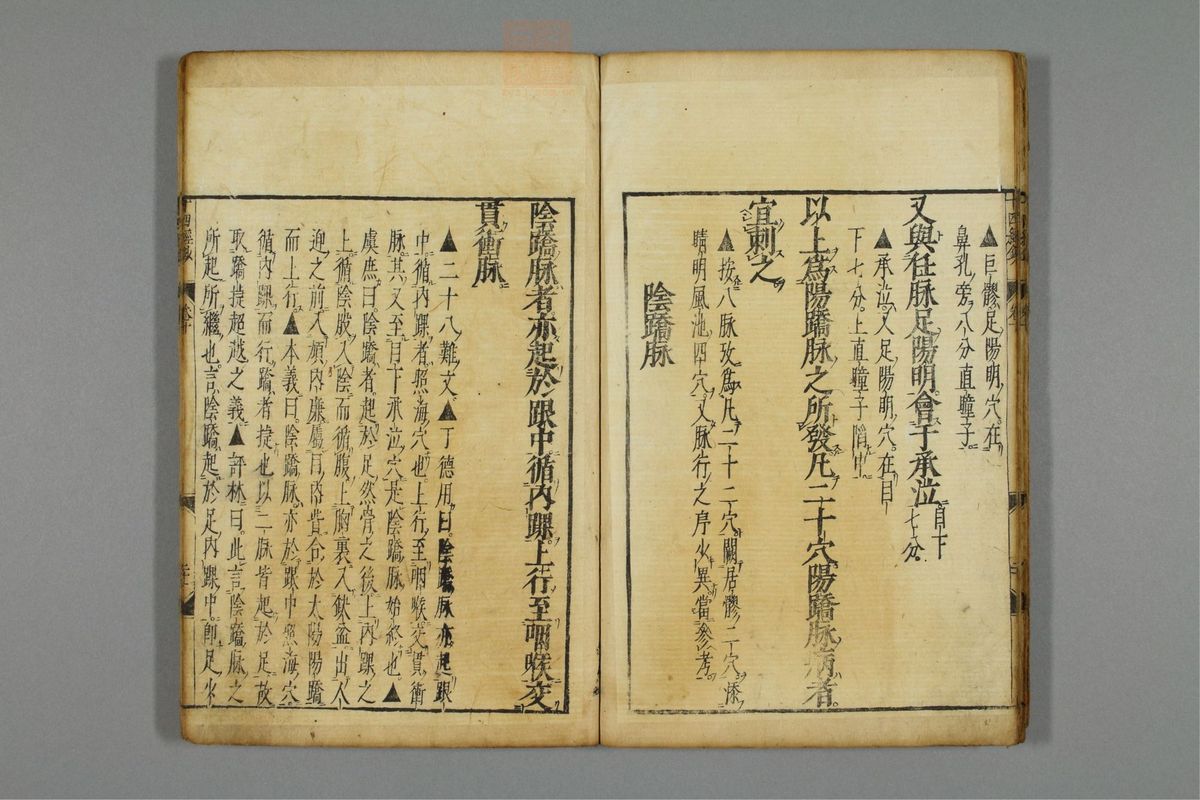 ▲巨髎足陽明穴在
鼻孔旁八分直瞳子
又與任脉足陽明會于承泣目下七分
▲承泣又足陽明穴在目
下七分上直瞳子陷中
以上爲陽蹻脉之所發凡二十穴陽蹻脉病者
宜刺之
▲按八脉攷爲凡二十二穴闕居髎二穴添
睛明風池四穴又脉行之序少異當參考
陰蹻脉
陰蹻脉者亦起於跟中循内踝上行至咽喉交
貫衝脉
▲二十八難文▲丁德用曰陰蹻脉亦起跟
中循内踝者照海穴也上行至咽喉交貫衝
脉其又至目下承泣穴是陰蹻脉始終也▲
虞庶曰陰蹻者起於足然骨之後上内踝之
上循陰股入陰而循腹上胸裏入缺盆出人
迎之前入頄内廉屬目内眥合於太陽陽蹻
而上行▲本義曰陰蹻脉亦於跟中照海穴
循内踝而行蹻者捷也以二脉皆起於足故
取蹻捷超越之義▲評林曰此言陰蹻脉之
所起所繼也言陰蹻起於足内踝中即足少